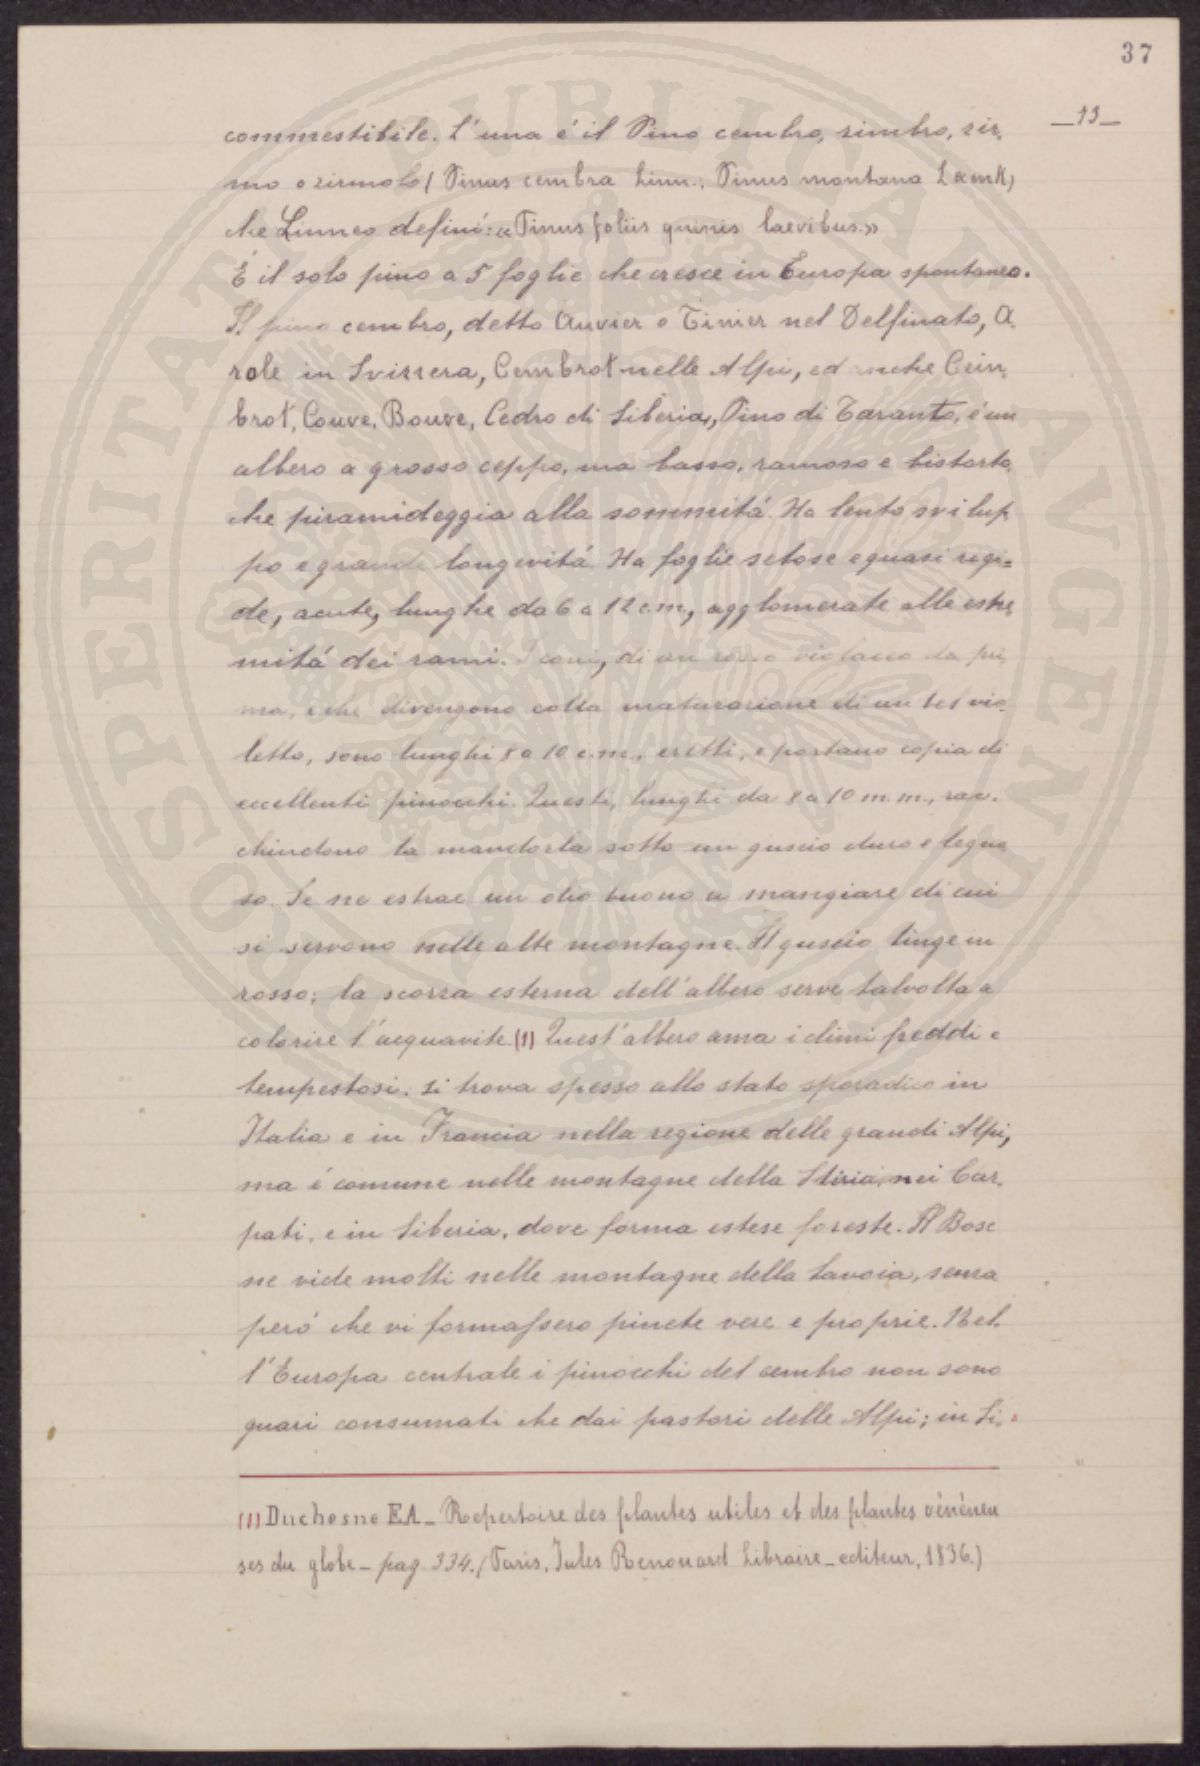 37
_13_
commestibile. L'una é il Pino cembro, zimbro, zir-
mo o zirmolo (Pinus cembra Linn.; Pinus montana Lamk)
che Linneo definí: «Pinus foliis quinis laevibus.»
È il solo pino a 5 foglie che cresce in Europa spontaneo.
Il pino cembro, detto Auvier o Tinier nel Delfinato, A-
role in Svizzera, Cembrot nelle Alpi, ed anche Cein-
brot, Couve, Bouve, Cedro di Siberia, Pino di Taranto, é un
albero a grosso ceppo, ma basso, ramoso e bistorto,
che piramideggia alla sommitá. Ha lento svilup-
po e grande longevitá. Ha foglie setose e quasi rigi=
de, acute, lunghe da 6 a 12 c.m, agglomerate alle estre-
mitá dei rami. I coni, di un rosso violaceo da pri-
ma, e che divengono colla maturazione di un bel vio-
letto, sono lunghi 8 a 10 c.m., eretti, e portano copia di
eccellenti pinocchi. Questi, lunghi da 8 a 10 m.m., rac-
chiudono la mandorla sotto un guscio duro e legno-
so. Se ne estrae un olio buono a mangiare di cui
si servono nelle alte montagne. Il guscio tinge in
rosso; la scorza esterna dell'albero serve talvolta a
colorire l'acquavite.(1) Quest'albero ama i climi freddi e
tempestosi. Si trova spesso allo stato sporadico in
Italia e in Francia nella regione delle grandi Alpi,
ma é comune nelle montagne della Stiria, nei Car-
pati, e in Siberia, dove forma estese foreste. Il Bosc
ne vide molti nelle montagne della Savoia, senza
peró che vi formassero pinete vere e proprie. Nel-
l'Europa centrale i pinocchi del cembro non sono
quasi consumati che dai pastori delle Alpi; in Si-
(1) Duchesne E.A. _ Repertoire des plantes utiles et des plantes vènèneu
ses du globe _ pag. 334. (Paris, Jules Renouard Libraire _ editeur, 1836.)